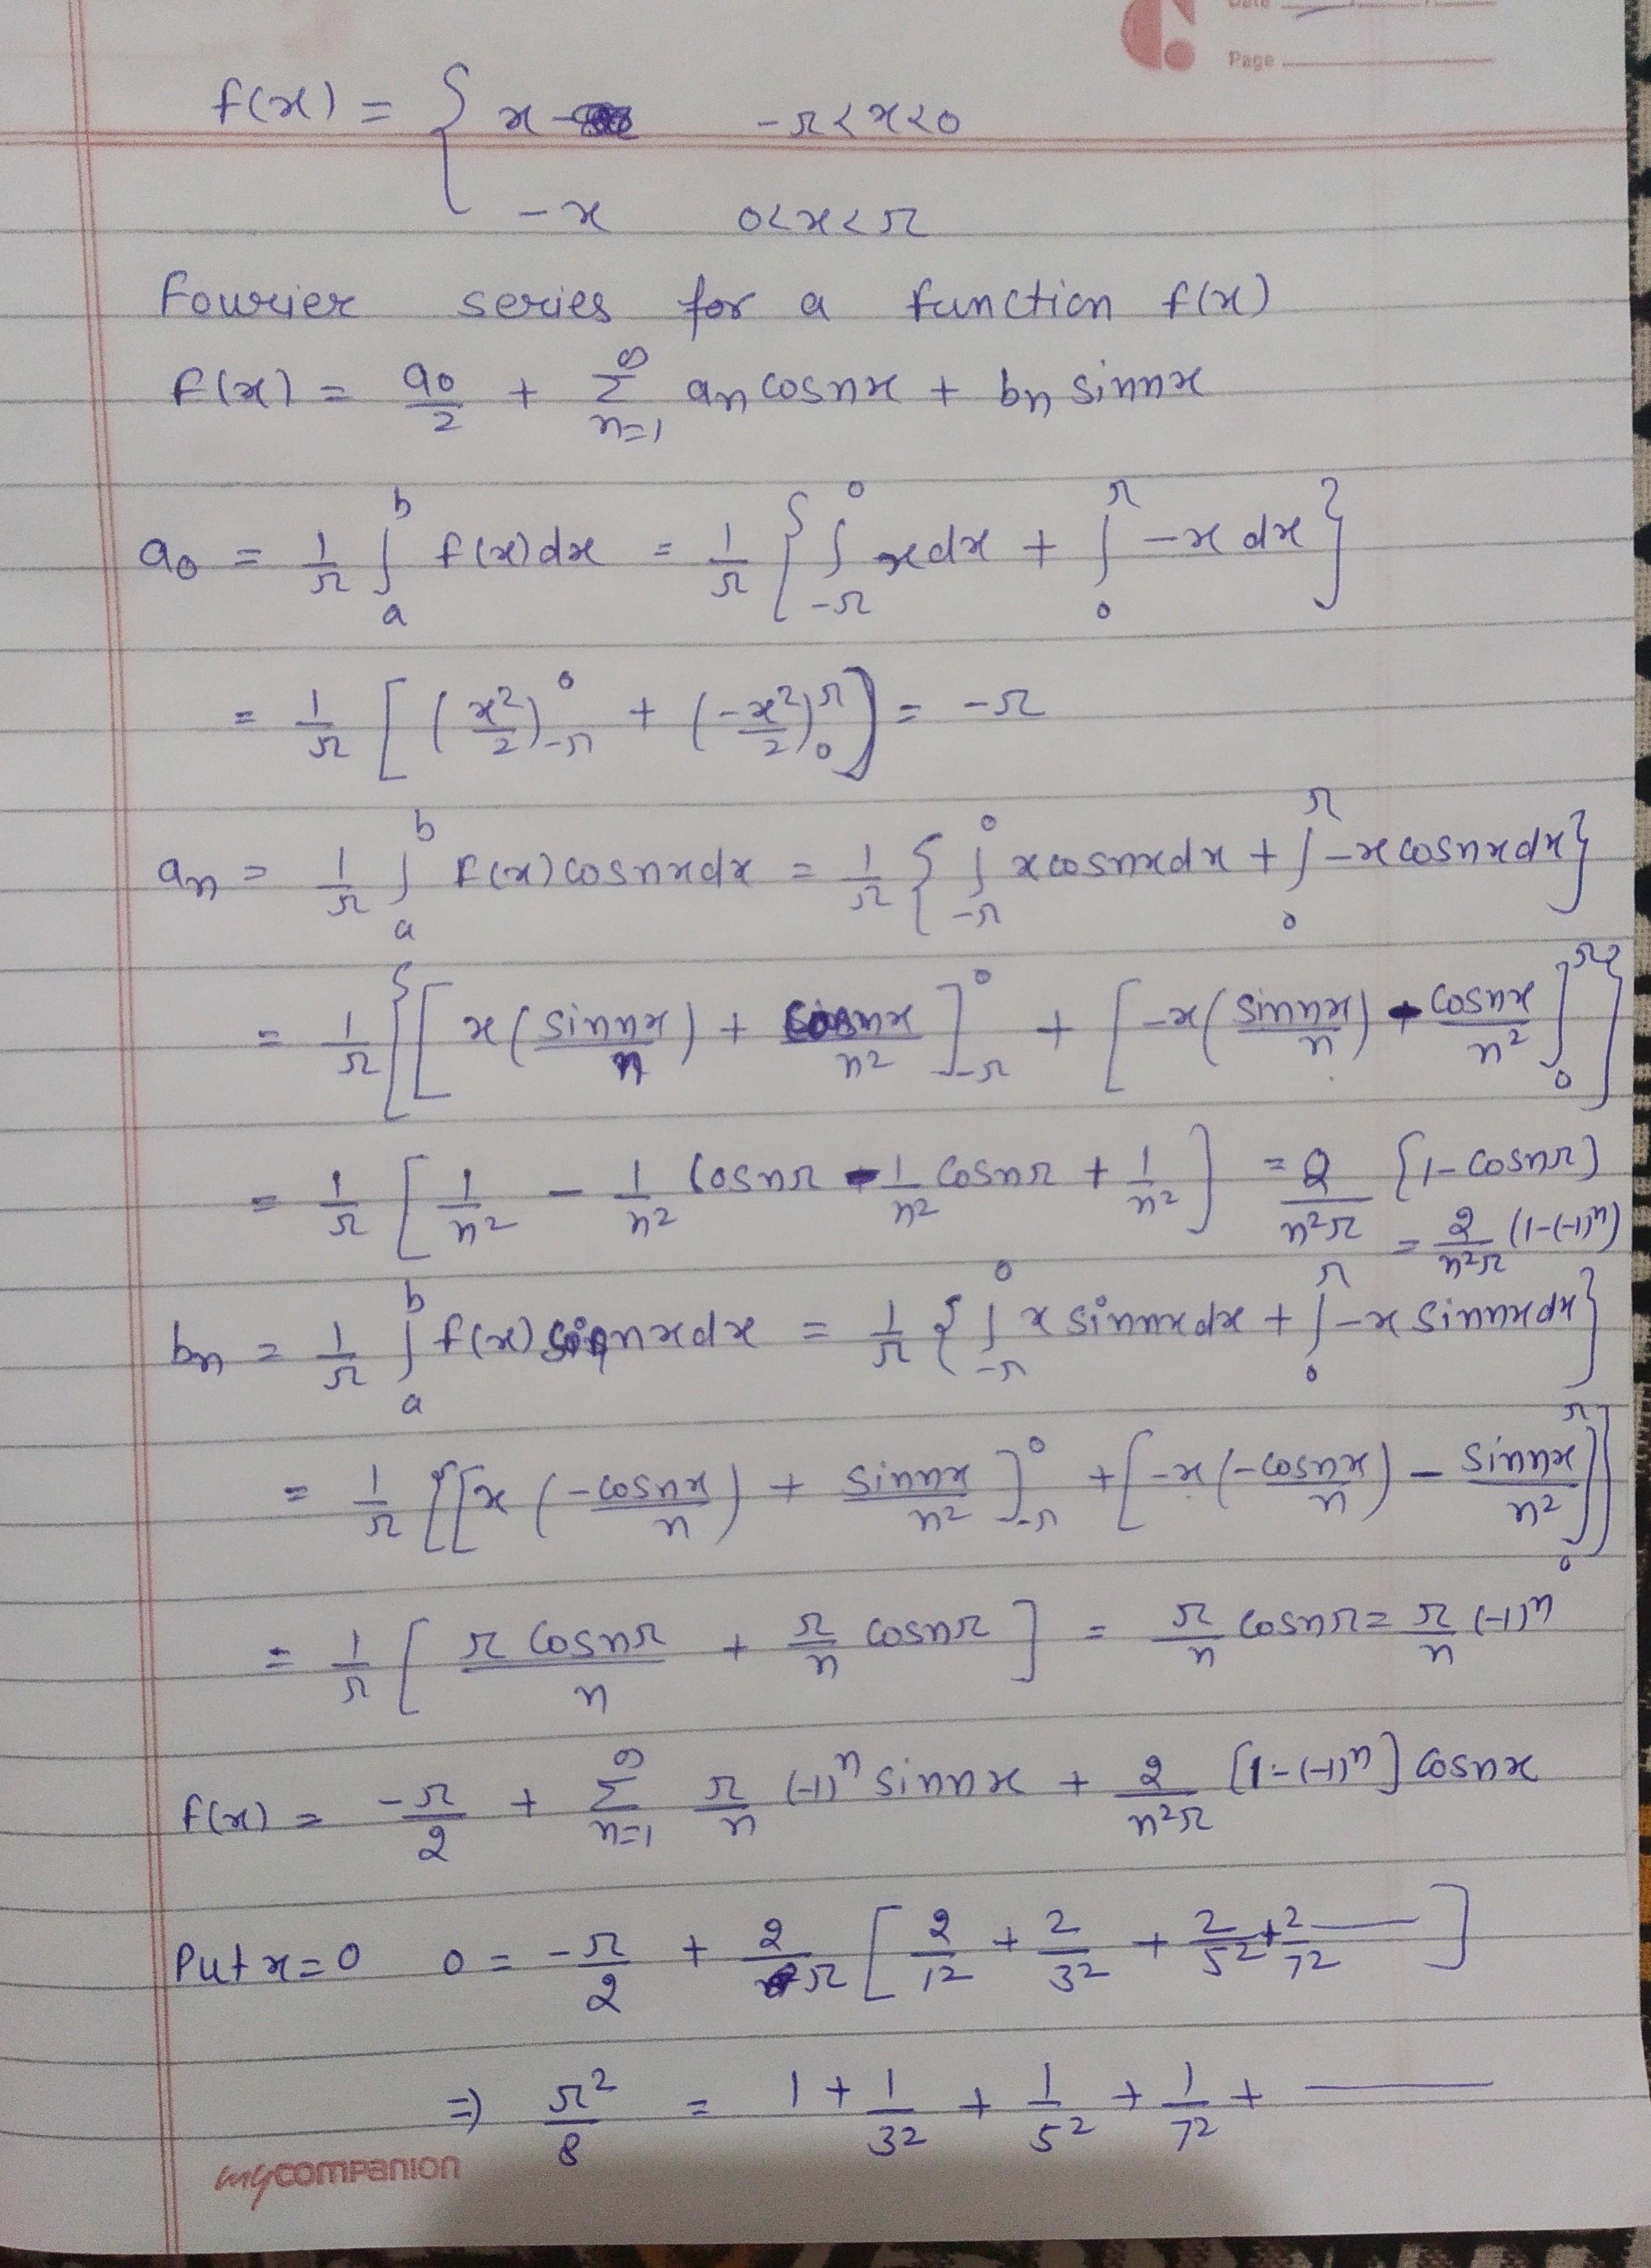 Date
Page
f(x) = { x - -π<x<0
-x 0<x<π
Fourier series for a function f(x)
f(x) = a0/2 + ∞Σn=1 an cosnx + bn sinnx
a0 = 1/π ∫ab f(x)dx = 1/π { ∫-π0 xdx + ∫0π -x dx }
= 1/π [ (x²/2)-π0 + (-x²/2)0π ] = -π
an = 1/π ∫ab f(x)cosnxdx = 1/π { ∫-π0 xcosnxdx + ∫0π -xcosnxdx }
= 1/π { [ x(sinnx/n) + cosnx/n² ]-π0 + [ -x(sinnx/n) - cosnx/n² ]0π }
= 1/π [ 1/n² - 1/n² cosnπ - 1/n² cosnπ + 1/n² ] = 2/n²π [1-cosnπ)
= 2/n²π (1-(-1)ⁿ)
bn = 1/π ∫ab f(x)sinnxdx = 1/π { ∫-π0 x sinnxdx + ∫0π -x sinnxdx }
= 1/π { [ x(-cosnx/n) + sinnx/n² ]-π0 + [ -x(-cosnx/n) - sinnx/n² ]0π }
= 1/π [ π cosnπ/n + π/n cosnπ ] = π/n cosnπ = π/n (-1)ⁿ
f(x) = -π/2 + ∞Σn=1 π/n (-1)ⁿ sinnx + 2/n²π [1-(-1)ⁿ] cosnx
Put x=0 0 = -π/2 + 2/π [ 2/1² + 2/3² + 2/5² + 2/7² — ]
⇒ π²/8 = 1 + 1/3² + 1/5² + 1/7² + —
mycompanion